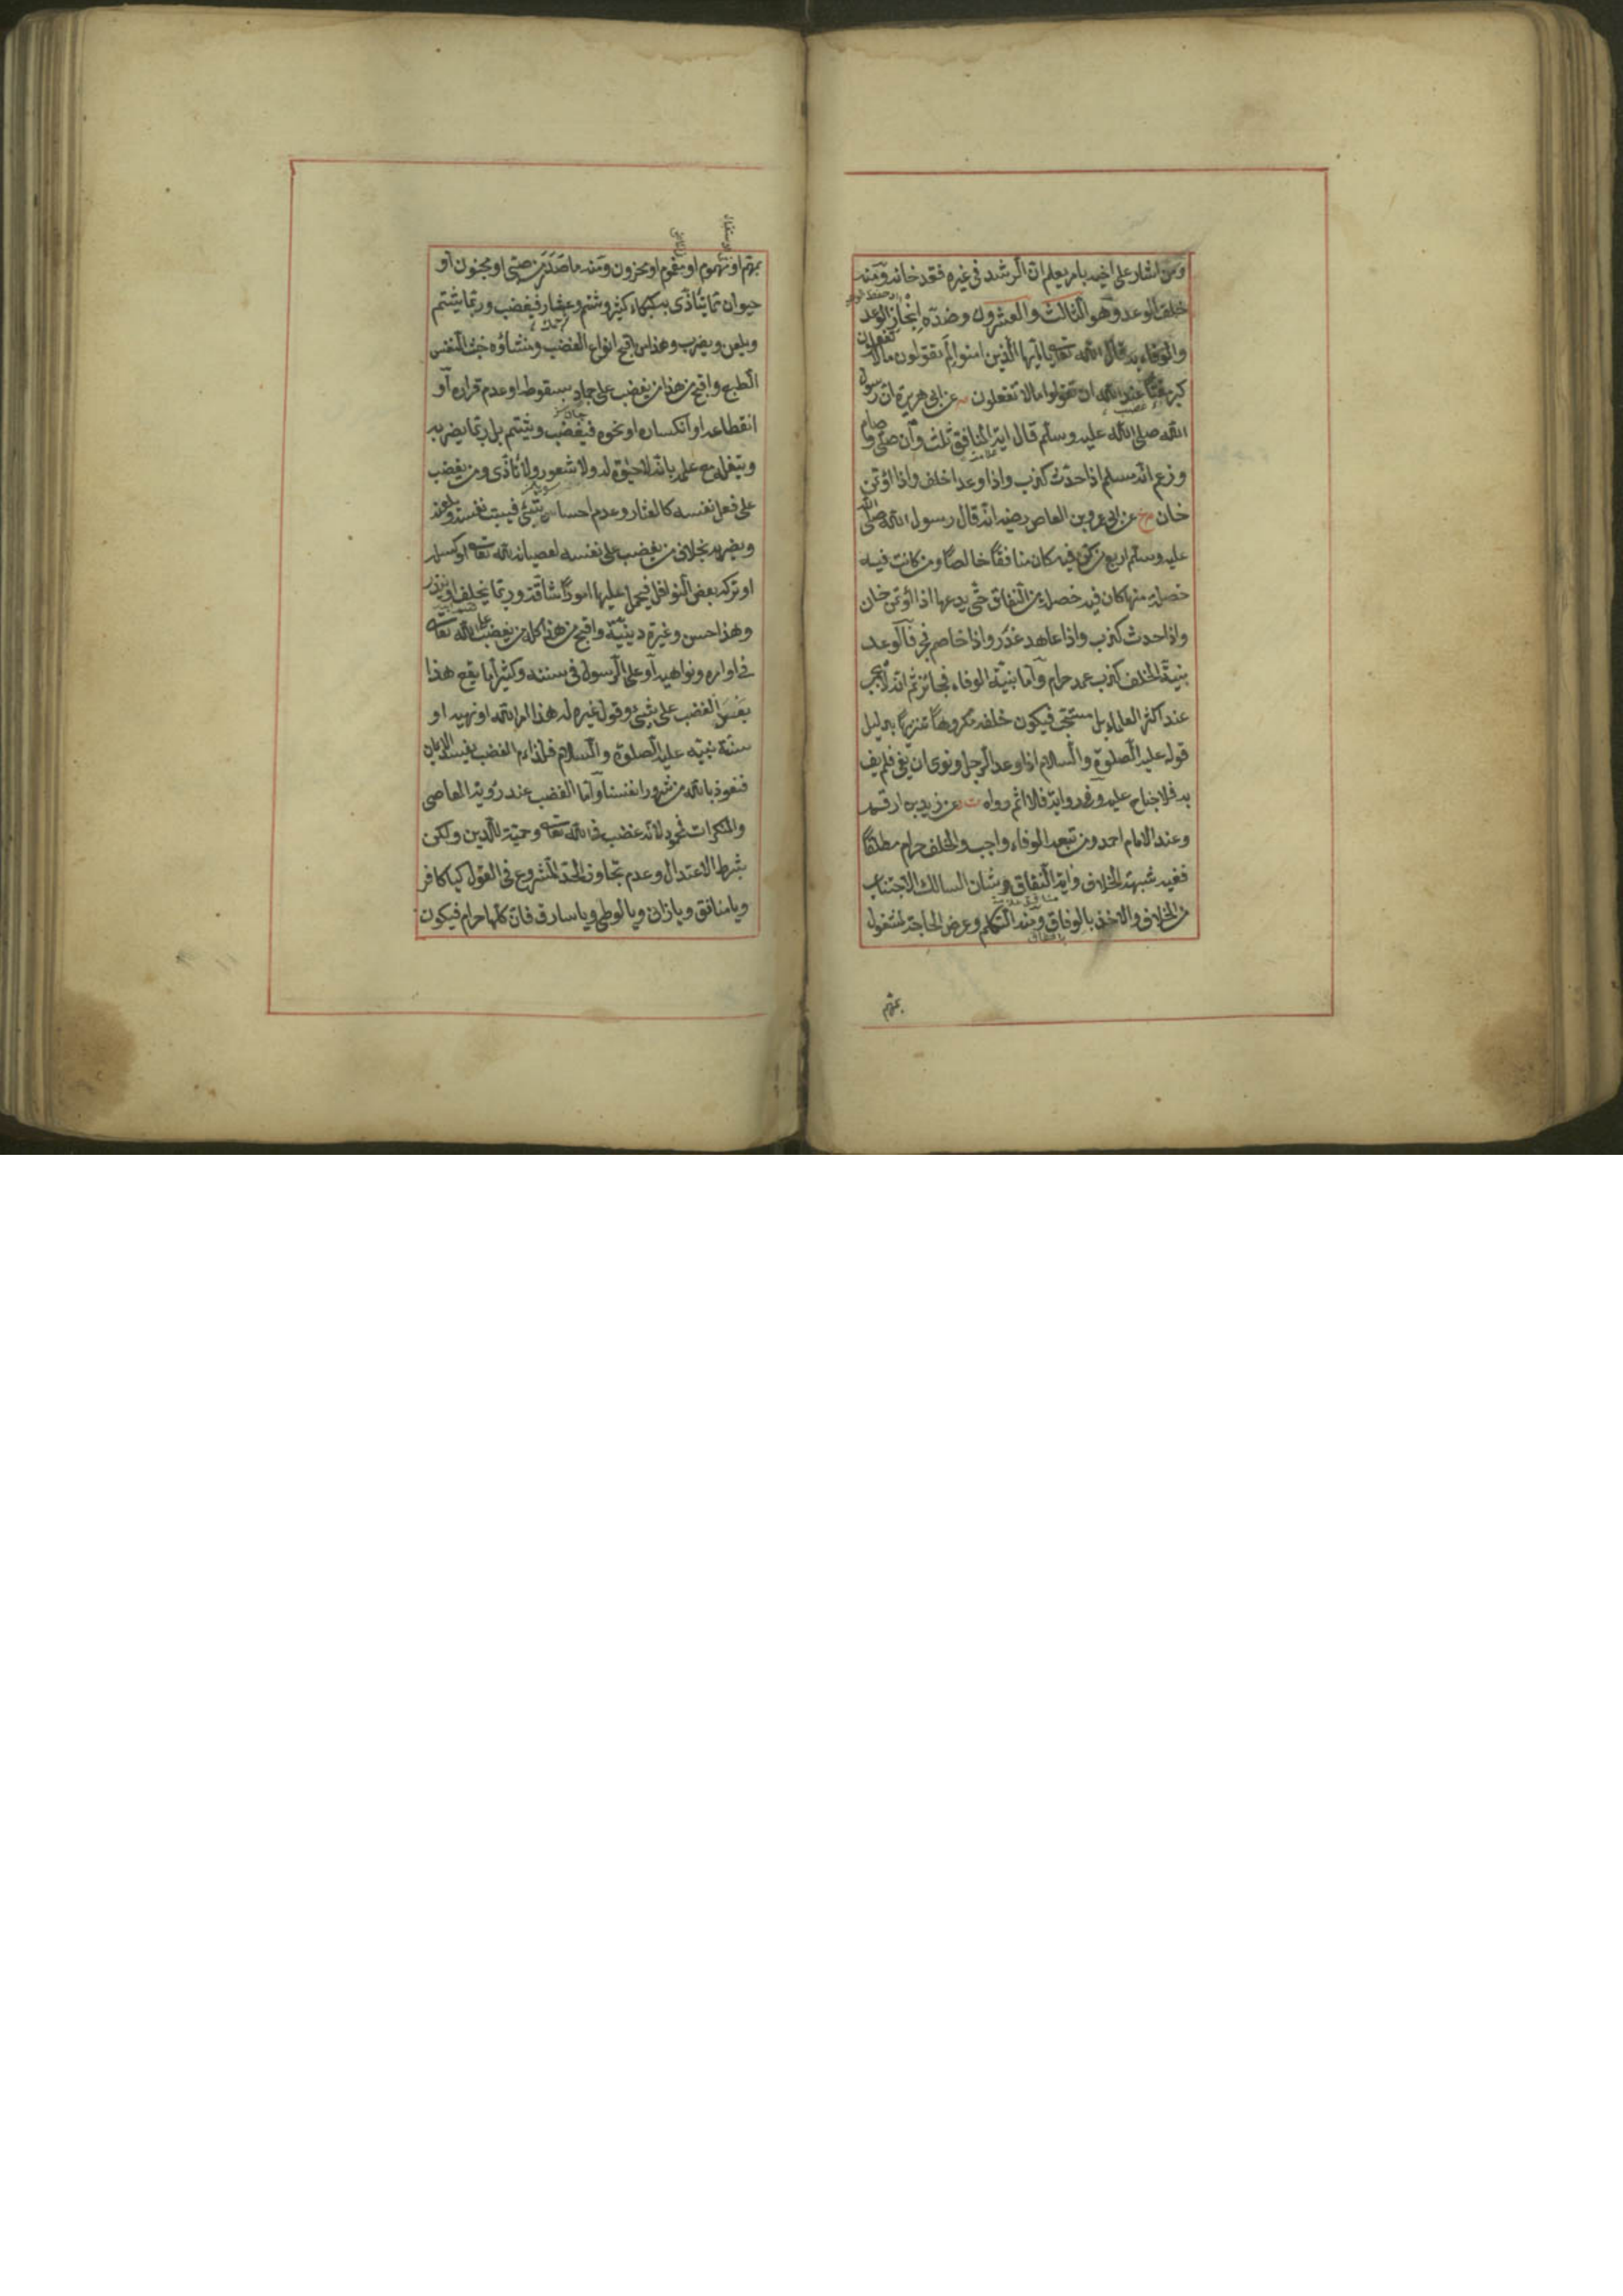 ومن اشار على اخيه بامر يعلم ان الرشد فى غيره فقد خانه ومنه
خلف الوعد وهو الثالث والعشرون وضده انجاز الوعد
والوفاء به قال الله تعالى يا ايها الذين امنوا لم تقولون ما لا تفعلون
كبر مقتا عند الله ان تقولوا ما لا تفعلون عن ابى هريرة ان رسول
الله صلى الله عليه وسلم قال اية المنافق ثلث وان صلى وصام
وزعم انه مسلم اذا حدث كذب واذا وعد اخلف واذا اؤتمن
خان خ عن ابى عمرو بن العاص رضيه انه قال رسول الله صلى الله
عليه وسلم اربع من كن فيه كان منافقا خالصا ومن كانت فيه
خصلة منها كان فيه خصلة من النفاق حتى يدعها اذا اؤتمن خان
واذا حدث كذب واذا عاهد غدر واذا خاصم فجر فالوعد
بنية الخلف كذب عمد حرام واما بنية الوفاء فجائز ثم انه لا يجب
عند اكثر العلماء بل مستحب فيكون خلفه مكروها تنزيها بدليل
قوله عليه الصلوة والسلام اذا وعد الرجل ونوى ان يفى فلم يف
به فلا جناح عليه وفى رواية فلا اثم رواه ت عن زيد بن ارقم
وعند الامام احمد ومن تبعه الوفاء واجب والخلف حرام مطلقا
ففيه شبهة الخلاف واية النفاق وشان السالك الاجتناب
من الخلاف والاخذ بالوفاق ومنه التكلم وعرض الحاجة لمشغول
بمهم
بمهم او مهموم او مغموم او محزون ومنه ما صدر من صبى او مجنون او
حيوان مما يتأذى به كبكاء كثير وشتم وعثار فيغضب وربما يشتم
ويلعن ويضرب وهذا من اقبح انواع الغضب ومنشاؤه خبث النفس
الطبع واقبح من هذا من يغضب على جماد بسقوطه او عدم قراره او
انقطاعه او انكساره او نحوه فيغضب ويشتم بل ربما يضربه
ويتفل مع علمه بانه لا حيوة له ولا شعور ولا تأذى ومن يغضب
على فعل نفسه كالعثار وعدم احسان شئ فيسب نفسه ويلعنه
ويضربه بخلاف من يغضب على نفسه لعصيانه لله تعالى او كسله
او تركه بعض النوافل فيحمل عليها امورا شاقة وربما يحلف او ينذر
وهذا حسن وغيرة دينية واقبح من هذا كله من يغضب على الله تعالى
فى اوامره ونواهيه او على الرسول فى سننه وكثيرا ما يقع هذا
بغس الغضب على شئ وقول غيره له هذا امر الله او نهيه او
سنة نبيه عليه الصلوة والسلام فلذا ورد الغضب يفسد الايمان
فنعوذ بالله من شرور انفسنا واما الغضب عند رؤية المعاصى
والمنكرات فمحمود لانه غضب فى الله تعالى وحمية للدين ولكن
بشرط الاعتدال وعدم تجاوز الحد المشروع فى القول كيا كافر
ويا منافق ويا زانى ويا لوطى ويا سارق فان كلها حرام فيكون